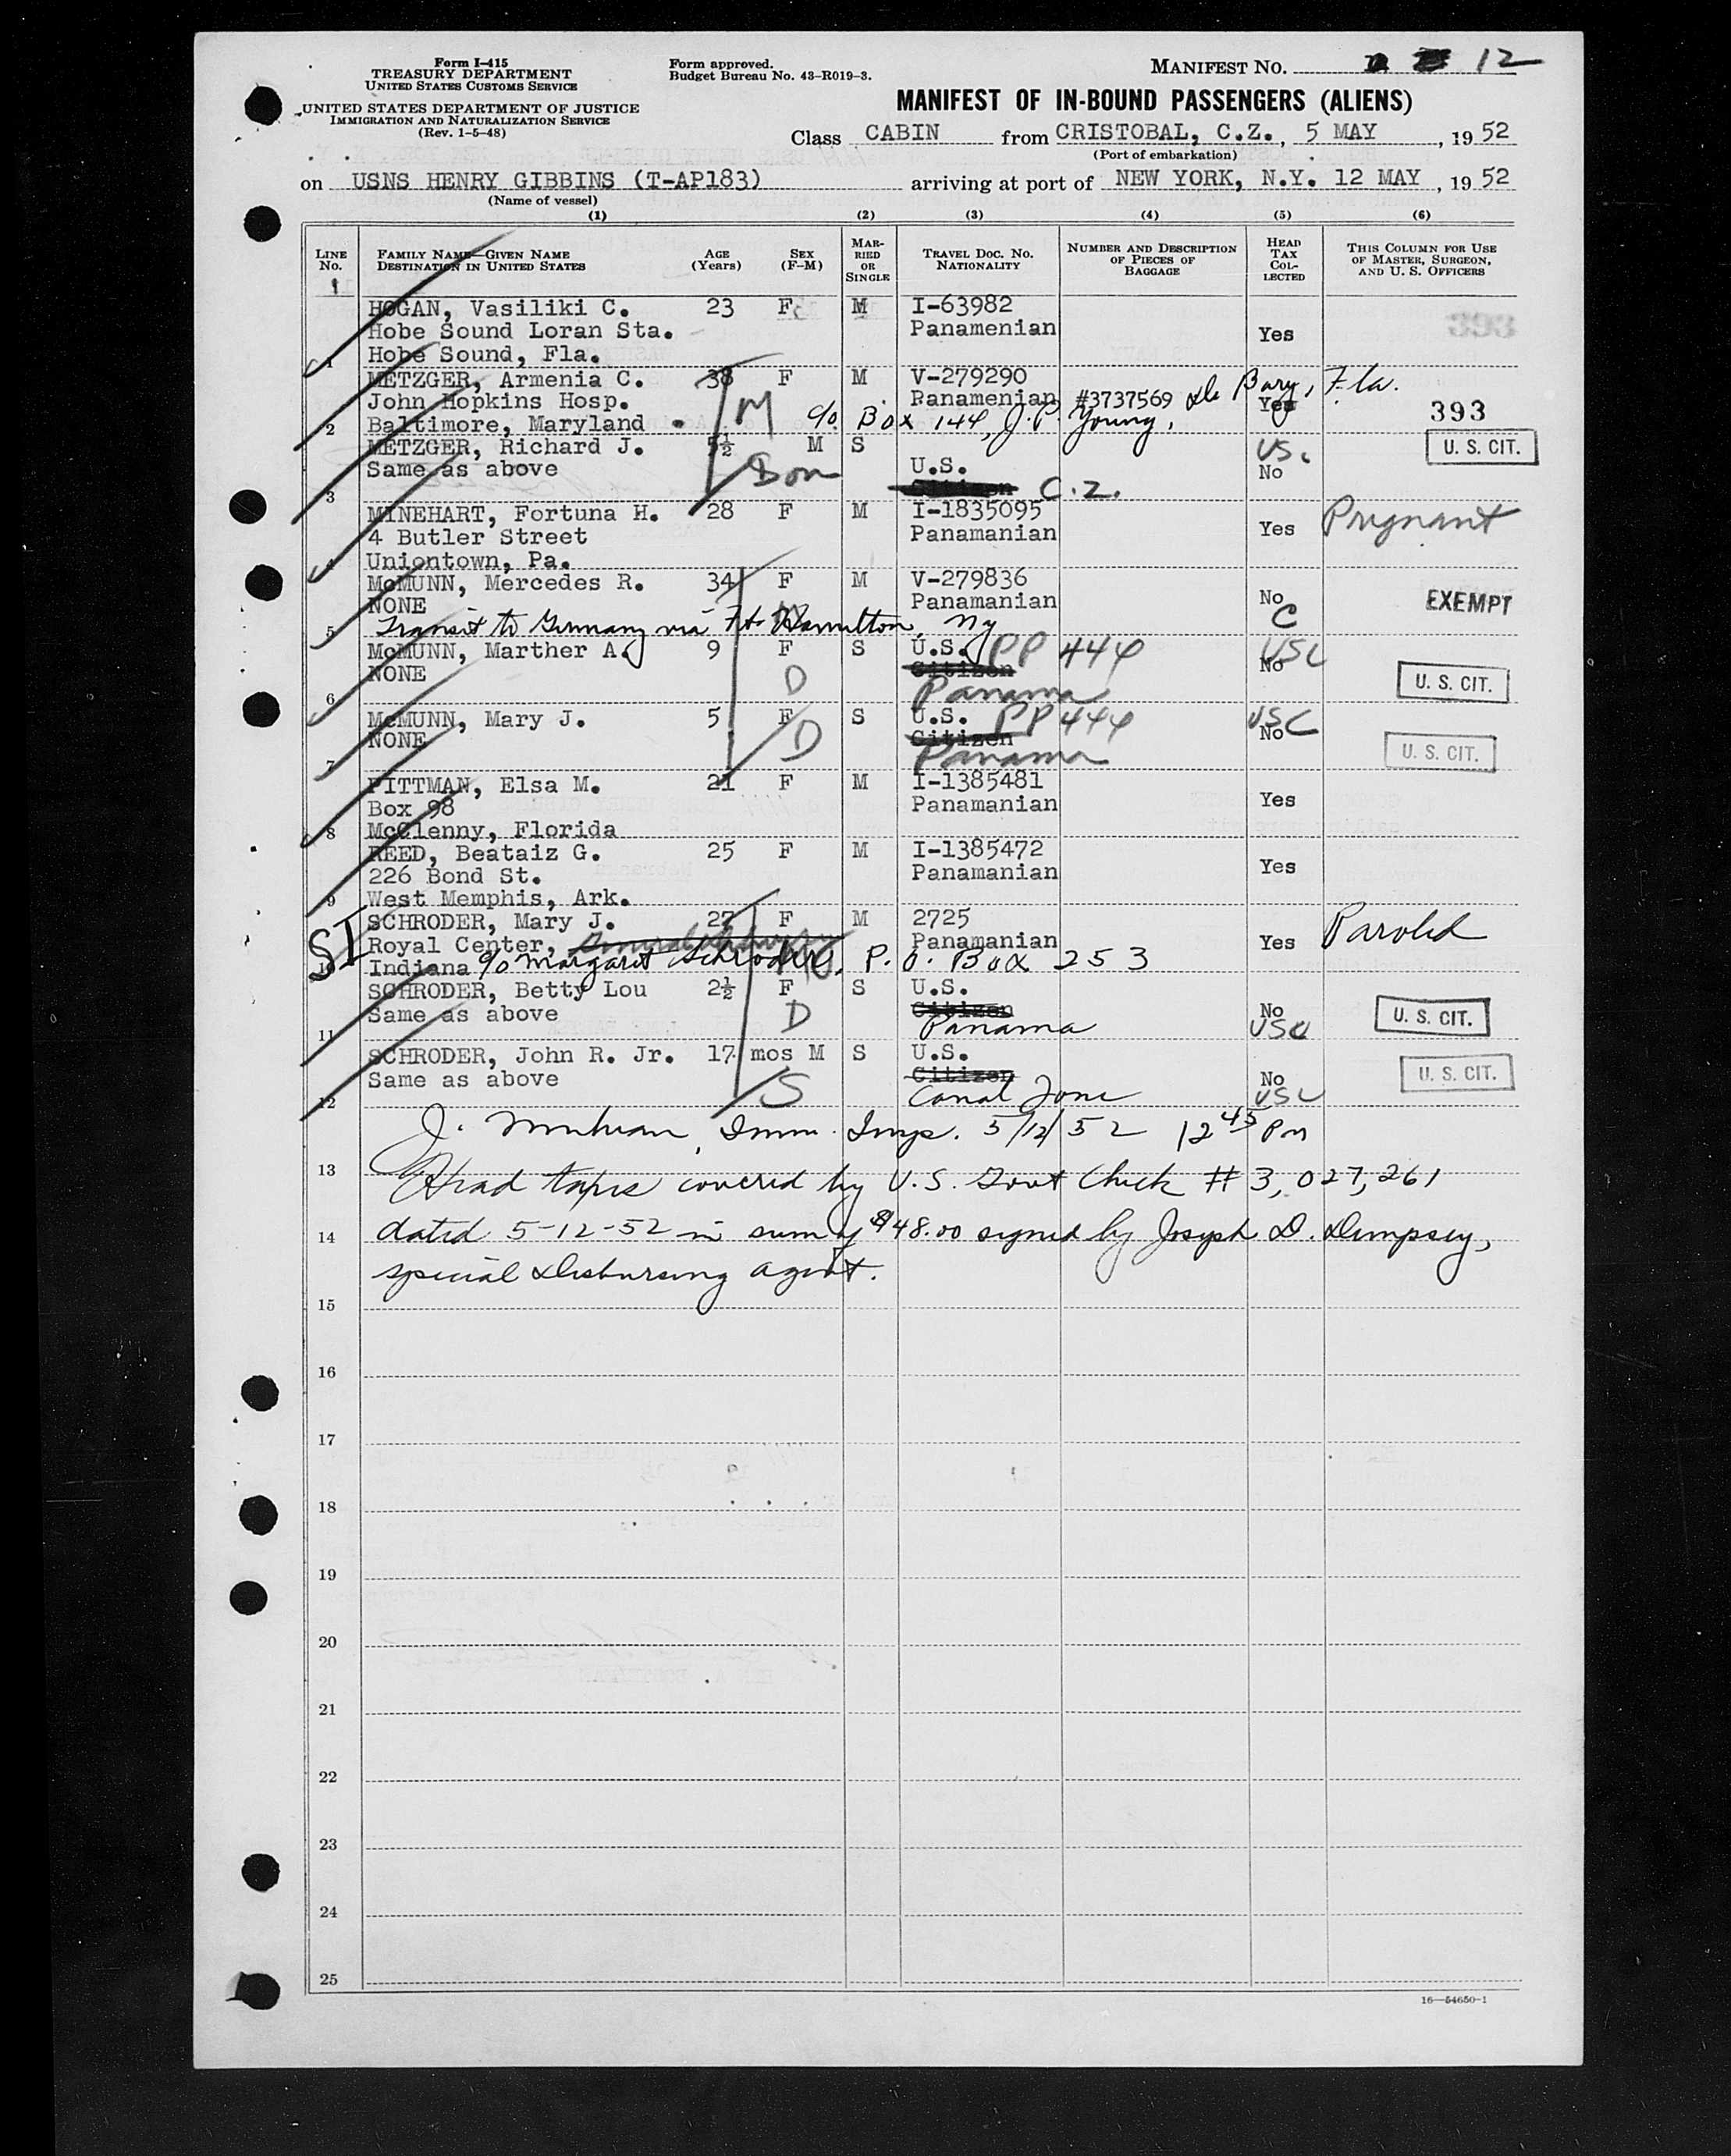 Form I-415
TREASURY DEPARTMENT
UNITED STATES CUSTOMS SERVICE
UNITED STATES DEPARTMENT OF JUSTICE
IMMIGRATION AND NATURALIZATION SERVICE
(Rev. 1-5-48)
Form approved.
Budget Bureau No. 43-R019-3.
MANIFEST NO. 12
MANIFEST OF IN-BOUND PASSENGERS (ALIENS)
Class CABIN from CRISTOBAL, C.Z., 5 MAY, 19 52
(Port of embarkation)
on USNS HENRY GIBBINS (T-AP183) arriving at port of NEW YORK, N.Y. 12 MAY, 19 52
(Name of vessel)
(1) (2) (3) (4) (5) (6)
LINE NO. FAMILY NAME—GIVEN NAME DESTINATION IN UNITED STATES AGE (Years) SEX (F-M) MARRIED OR SINGLE TRAVEL DOC. NO. NATIONALITY NUMBER AND DESCRIPTION OF PIECES OF BAGGAGE HEAD TAX COLLECTED THIS COLUMN FOR USE OF MASTER, SURGEON, AND U. S. OFFICERS
HOGAN, Vasiliki C. 23 F M I-63982
Hobe Sound Loran Sta. Panamenian Yes
1 Hobe Sound, Fla.
METZGER, Armenia C. 38 F M V-279290
John Hopkins Hosp. M Panamenian #3737569 De Bary, Fla. Yes 393
2 Baltimore, Maryland c/o Box 144, J.P. Young,
METZGER, Richard J. 5½ M S US. U. S. CIT.
Same as above Son U.S. No
3 Citizen C.Z.
MINEHART, Fortuna H. 28 F M I-1835095
4 Butler Street Panamanian Yes Pregnant
4 Uniontown, Pa.
McMUNN, Mercedes R. 34 F M V-279836
NONE Panamanian No EXEMPT
5 Transit to Germany via Ft. Hamilton, Ny C
McMUNN, Marther A. 9 F S U.S. PP 444 USC
NONE D Citizen No U. S. CIT.
6 Panama
McMUNN, Mary J. 5 F S U.S. PP 444 USC
NONE D Citizen No U. S. CIT.
7 Panama
PITTMAN, Elsa M. 21 F M I-1385481
Box 98 Panamanian Yes
8 McClenny, Florida
REED, Beataiz G. 25 F M I-1385472
226 Bond St. Panamanian Yes
9 West Memphis, Ark.
SCHRODER, Mary J. 27 F M 2725
SI Royal Center, Panamanian Yes Paroled
10 Indiana c/o Margaret Schroder, P.O. Box 253
SCHRODER, Betty Lou 2½ F S U.S.
Same as above D Citizen No U. S. CIT.
11 Panama USC
SCHRODER, John R. Jr. 17 mos M S U.S.
Same as above S Citizen No U. S. CIT.
12 Canal Zone USC
Imm. Insp. 5/12/52 12 45 Pm
13 Head taxes covered by U.S. Govt Check # 3,027,261
14 dated 5-12-52 in sum of $48.00 signed by Joseph D. Dempsey,
special Disbursing agent.
15
16
17
18
19
20
21
22
23
24
25
16—54650-1